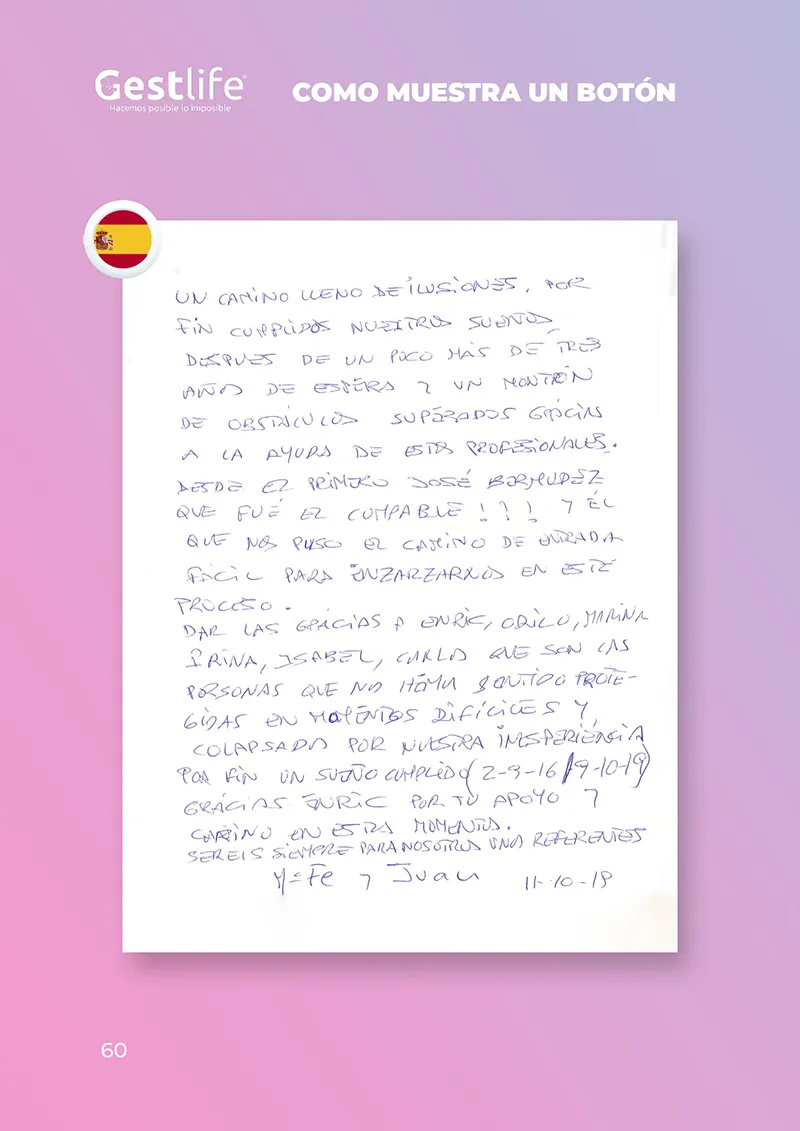 Gestlife
Hacemos posible lo imposible
COMO MUESTRA UN BOTÓN
UN CAMINO LLENO DE ILUSIONES, POR
FIN CUMPLIDOS NUESTROS SUEÑOS,
DESPUES DE UN POCO MÁS DE TRES
AÑOS DE ESPERA Y UN MONTÓN
DE OBSTÁCULOS SUPERADOS GRACIAS
A LA AYUDA DE ESTOS PROFESIONALES.
DESDE EL PRIMERO JOSÉ BERMUDEZ
QUE FUÉ EL CUMPABLE !!! Y ÉL
QUE NOS PUSO EL CAMINO DE ENTRADA
FÁCIL PARA ENZARZARNOS EN ESTE
PROCESO.
DAR LAS GRACIAS A ENRIC, MARINA
IRINA, ISABEL, CARLA QUE SON LAS
PERSONAS QUE NOS SENTIDO PROTE-
GIDAS EN MOMENTOS DIFÍCILES Y
COLAPSADO POR NUESTRA INESPERIENCIA
POR FIN UN SUEÑO CUMPLIDO (2-9-16/9-10-19)
GRACIAS ENRIC POR TU APOYO Y
CARIÑO EN ESTOS MOMENTOS.
SEREIS SIEMPRE PARA NOSOTROS UNOS REFERENTES
Mª FE Y JUAN 11-10-19
60